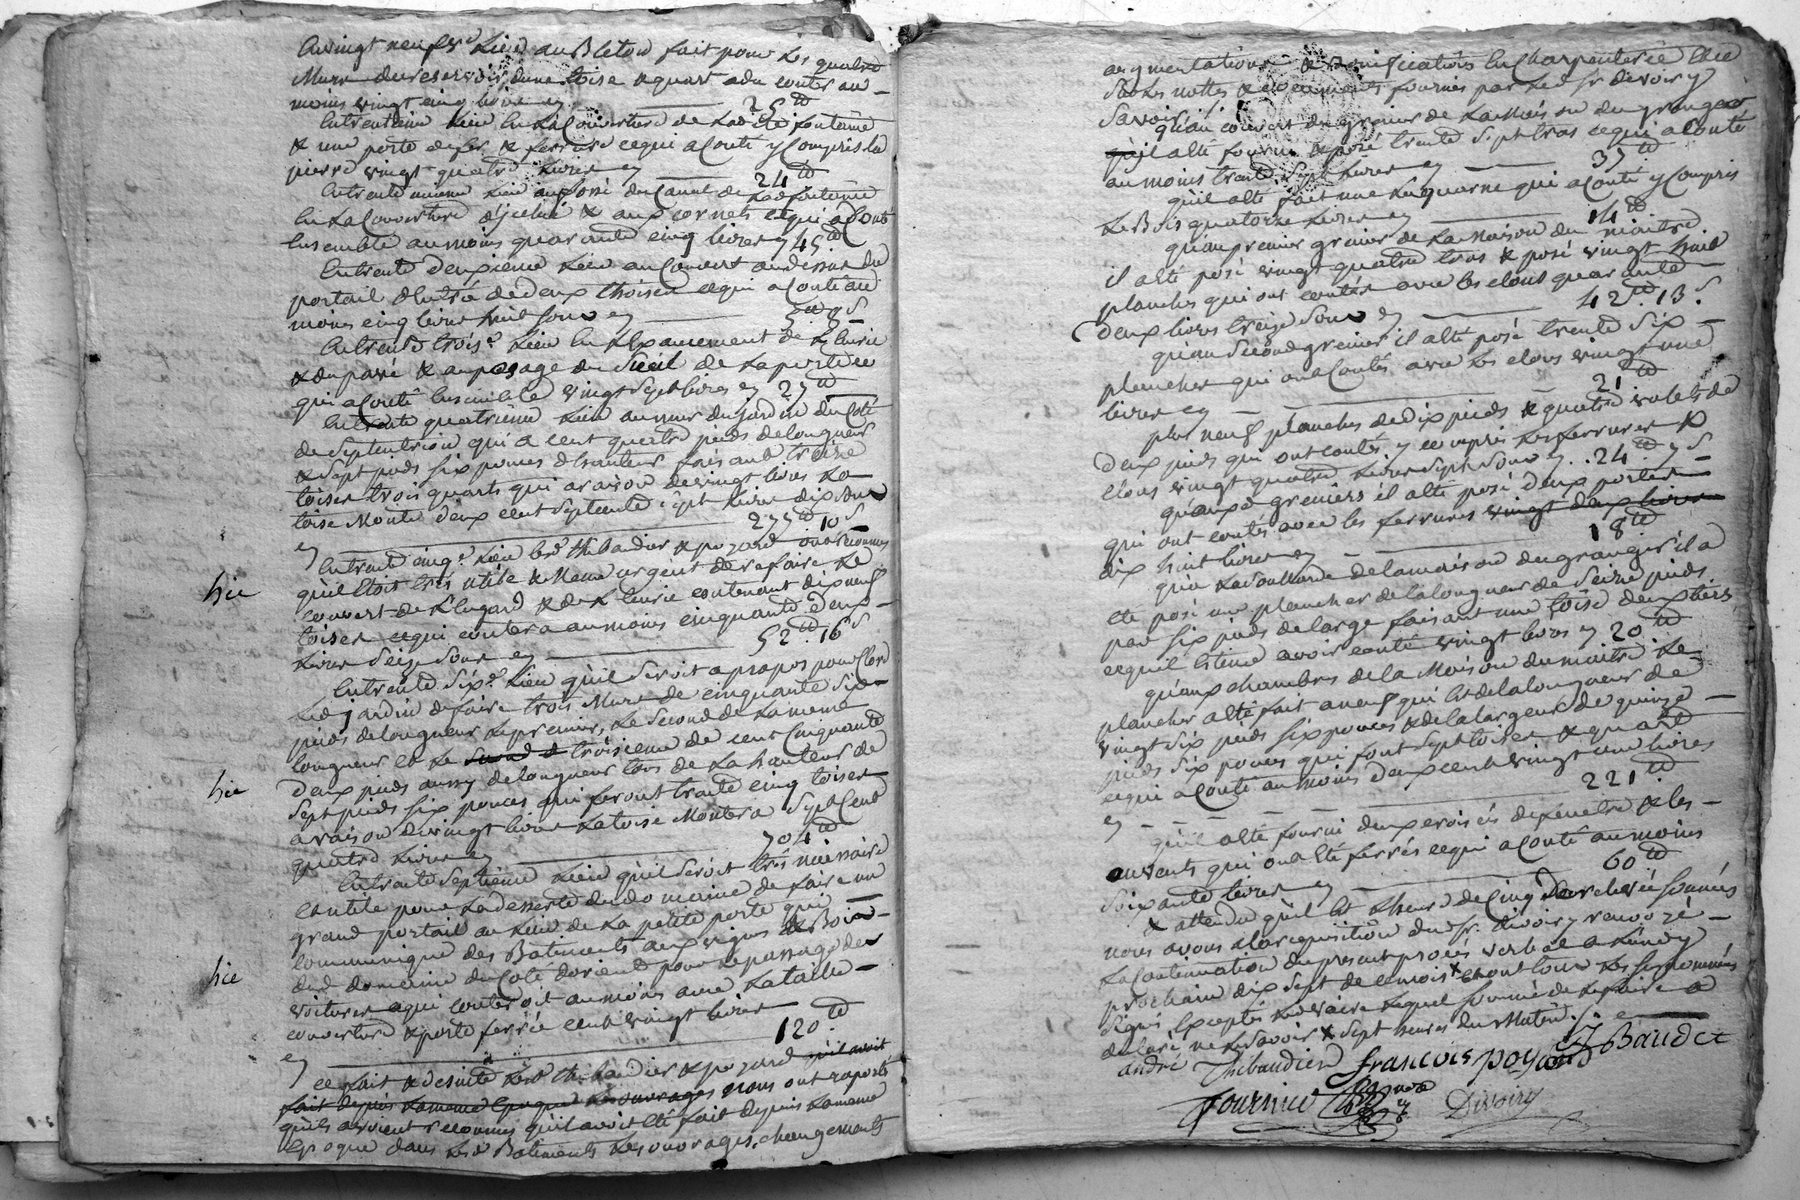 Au vingt neufv.e Lieu au Bletou fait pour Les quatre
Murs du reservoir d'une toise & quart a du couter au
moins vingt cinq livres cy 25 tt
En trentieme Lieu En La Couverture de Lad.te fontaine
& une porte de fer & ferrure ce qui a Couté y Compris La
pierre vingt quatre Livres cy 24 tt
En trente unieme Lieu au fossé du Canal de Lad. fontaine
En La Couverture d'jcelui & aux cornets ce qui a Couté
Ensemble au moins quarante cinq livres cy 45 tt
En trente deuxieme Lieu au Couvert au dessus du
portail d'Entrée de deux thoises ce qui a Couté au
moins cinq livres huit sous cy 5 tt 8 s
En trente trois.e Lieu En L'Exaucement de L'Ecurie
& du pavé & au posage du Seüil de La porte ce
qui a Couté Ensemble vingt sept livres cy 27 tt
En trente quatrieme Lieu au mur du jardin du Coté
de Septentrion qui a cent quatre pieds de longueur
& sept pieds six pouces d'hauteur faisant treize
toises trois quarts qui a raison de vingt livres La
toise Monte deux cent Septante sept Livres dix sous
cy 277 tt 10 s
En trente cinq.e Lieu Lesd. thibaudier & pozard ont reconnu
hic qu'il Etoit tres utile & Meme urgent de refaire Le
couvert de L'Engard & de L'Ecurie contenant dix neuf
toises ce qui coutera au moins cinquante deux
Livres Seize Sous cy 52 tt 16 s
En trente Six.e Lieu qu'il Seroit a propos pour Clore
Led jardin de faire trois Murs de cinquante six
pieds de longueur Le premier, Le Second de La meme
longueur et Le second & troisieme de cent Cinquante
hic deux pieds aussy de longueur tous de La hauteur de
Sept pieds six pouces qui feront trente cinq toises
a raison de vingt livres La toise Montera Sept Cent
quatre Livres cy 704 tt
En trente Septieme Lieu qu'il Seroit tres nécessaire
et utile pour La desserte dud. domaine de faire un
grand portail au Lieu de La petite porte qui
communique des Batiments aux vignes & Bois
hic dud. domaine du Coté d'orient pour Le passage des
voitures ce qui couteroit au moins avec La taille
couverture & porte ferrée cent vingt livres
cy 120 tt
ce fait & desuite Lesd. thibaudier & pozard qu'il avoit
fait depuis La meme Epoque Les ouvrages nous ont raporté
qu'ils avoient reconnus qu'il avoit Eté fait depuis La meme
Epoque dans Lesd Batiments Les ouvrages, changements
augmentations & Bonifications En Charpenterie Etc
Sur Les nottes & documents fournis par Led. Sr. divoiry
Savoir
qu'au couvert du grenier de La Maison du granger
qu'il a Eté fourni & posé trente Sept tras ce qui a Couté
au moins trente Sept Livres cy 37 tt
qu'il a Eté fait une Lucquarne qui a Couté y Compris
Le Bois quatorze Livres cy 14 tt
qu'au premier grenier de La Maison du maitre
il a Eté posé vingt quatre tras & posé vingt huit
planches qui ont coutés avec les clous quarante
deux livres treize Sous cy 42 tt 13 s
qu'au Second grenier il a Eté posé trente Six
planches qui ont Coutés avec Les clous vingt une
livres cy 21 tt
plus neuf planches de dix pieds & quatre volets de
deux pieds qui ont coutés y compris Les ferrures &
clous vingt quatre Livres Sept Sous cy 24 tt 7 s
qu'aux greniers il a Eté posé deux portes
qui ont coutés avec les ferrures vingt deux livres
dix huit livres cy 18 tt
qu'a La Souillarde de la maison du granger il a
Eté posé un plancher de la longueur de Seize pieds
par six pieds de large faisant une toise deux tiers
ce qu'il Estime avoir couté vingt livres cy 20 tt
qu'aux chambres de la Maison du maitre Le
plancher a Eté fait a neuf qui Est de la longueur de
vingt six pieds six pouces & de la largeur de quinze
pieds six pouces qui font sept toises & quart
ce qui a Couté au moins deux cent vingt une livres
cy 221 tt
qu'il a Eté fourni deux croisées de fenetre & les
auvents qui ont Eté ferrés ce qui a Couté au moins
Soixante livres cy 60 tt
& attendu qu'il Est L'heure de Cinq Sonnées
nous avons a La requisition dud. Sr. divoiry renvoyé
La Continuation du present procés verbal a Lundy
prochain dix Sept de ce mois & ont tous Les Susnommés
Signé, Excepté Led. vaire Lequel Sommé de Le faire a
déclaré ne le Savoir & Sept heures du Matin.
J Baudet
andré Thibaudier françois poyard
Fournier Divoiry